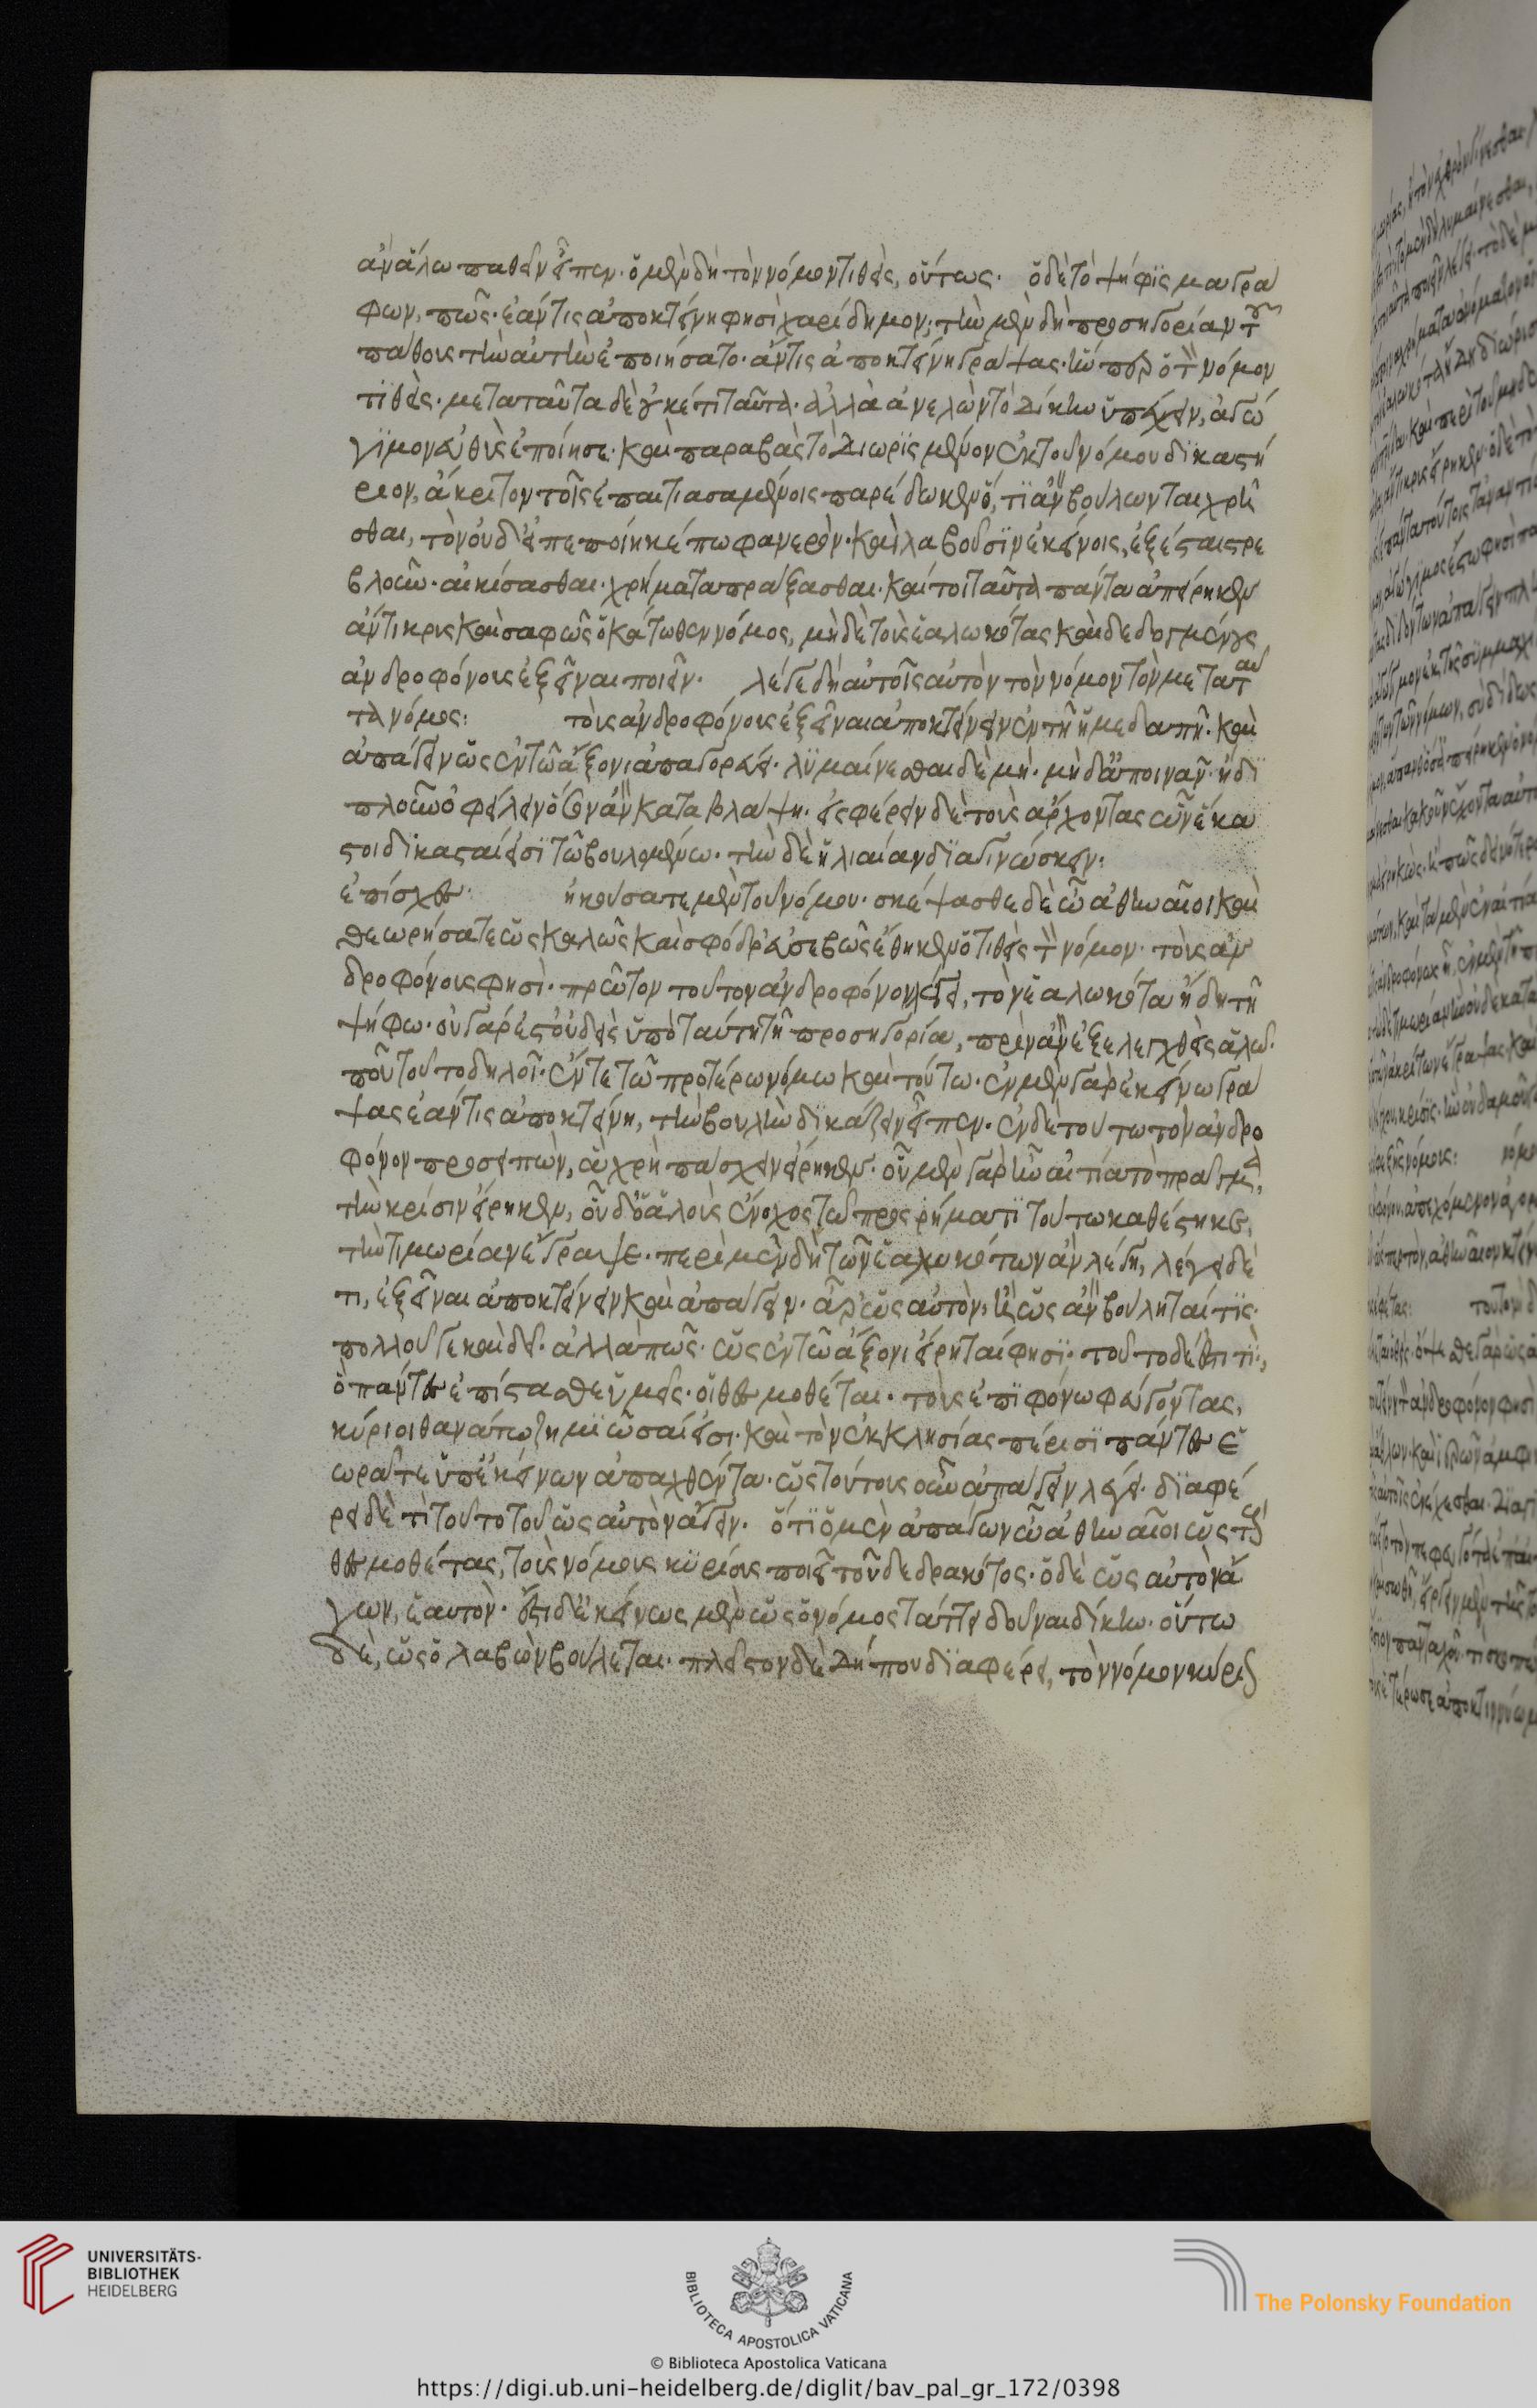 ἂν ἁλῶ παθεῖν εἶπεν. ὁ μὲν δὴ τὸν νόμον τιθεὶς, οὕτως. ὁ δὲ τὸ ψήφισμα γρά
φων, πῶς. ἐάν τις ἀποκτείνη φησὶ χαρίδημον; τὴν μὲν δὴ προσηγορίαν τοῦ
πάθους τὴν αὐτὴν ἐποιήσατο. ἄν τις ἀποκτείνη γράψας. ἥνπερ ὁ τὸν νόμον
τιθεὶς. μετὰ ταῦτα δὲ οὐκέτι ταῦτα. ἀλλὰ ἀνελὼν τὸ δίκην ὑπέχειν, ἀγώ
γιμον εὐθὺς ἐποίησε. καὶ παραβὰς τὸ διωρισμένον ἐκ τοῦ νόμου δικαστή
ριον, ἄκριτον τοῖς ἐπαιτιασαμένοις παρέδωκεν ὅ, τι ἂν βούλωνται χρῆ
σθαι, τὸν οὐδ' εἰ πεποίηκέ πω φανερὸν. καὶ λαβοῦσιν ἐκείνοις, ἐξέσται στρε
βλοῦν. αἰκίσασθαι. χρήματα πράξασθαι. καίτοι ταῦτα πάντα ἀπείρηκεν
ἄντικρις καὶ σαφῶς ὁ κάτωθεν νόμος, μὴδὲ τοὺς ἑαλωκότας καὶ δεδογμένους
ἀνδροφόνους ἐξεῖναι ποιεῖν. λέγε δὴ αὐτοῖς αὐτὸν τὸν νόμον τὸν μετὰ ταῦ
τα νόμος: τοὺς ἀνδροφόνους ἐξεῖναι ἀποκτείνειν ἐν τῆ ἡμεδαπῆ. καὶ
ἀπάγειν ὡς ἐν τῶ ἄξονι ἀπαγορεύει. λυμαίνεσθαι δὲ μὴ. μὴδ' ἀποινᾶν. ἢ δι
πλοῦν ὀφείλειν ὅσον ἂν καταβλάψη. εἰσφέρειν δὲ τοὺς ἄρχοντας ὧν ἕκα
στοι δικασταί εἰσι τῶ βουλομένω. τὴν δὲ ἡλιαίαν διαγινώσκειν:
ἐπίσχες. ἠκούσατε μὲν τοῦ νόμου. σκέψασθε δὲ ὦ ἀθηναῖοι καὶ
θεωρήσατε ὡς καλῶς καὶ σφόδρ' εὐσεβῶς ἔθηκεν ὁ τιθεὶς τὸν νόμον. τοὺς ἀν
δροφόνους φησὶ. πρῶτον τοῦτον ἀνδροφόνον λέγει, τὸν ἑαλωκότα ἤδη τῆ
ψήφω. οὐ γάρ ἐστ' οὐδεὶς ὑπὸ ταύτη τῆ προσηγορία, πρὶν ἂν ἐξελεγχθεὶς ἁλῶ.
ποῦ τοῦτο δηλοῖ. ἔν τε τῶ προτέρω νόμω καὶ τούτω. ἐν μὲν γὰρ ἐκείνω γρά
ψας ἐάν τις ἀποκτείνη, τὴν βουλὴν δικάζειν εἶπεν. ἐν δὲ τούτω τὸν ἀνδρο
φόνον προσειπὼν, ἃ χρὴ πάσχειν εἴρηκεν. οὗ μὲν γὰρ ἦν αἰτία τὸ πρᾶγμα,
τὴν κρίσιν εἴρηκεν, οὗ δ' ὁ ἁλοὺς ἔνοχος τῶ προσρήματι τούτω καθέστηκε,
τὴν τιμωρίαν ἔγραψε. περὶ μὲν δὴ τῶν ἑαλωκότων ἂν λέγη, λέγει δὲ
τι, ἐξεῖναι ἀποκτείνειν καὶ ἀπάγειν. ἆρ' ὡς αὑτὸν, ἢ ὡς ἂν βούληταί τις.
πολλοῦ γε καὶ δεῖ. ἀλλὰ πῶς. ὡς ἐν τῶ ἄξονι εἴρηταί φησι. τοῦτο δέ ἐστι τί.,
ὃ πάντες ἐπίστασθε ὑμεῖς. οἱ θεσμοθέται. τοὺς ἐπὶ φόνω φεύγοντας,
κύριοι θανάτω ζημιῶσαί εἰσι. καὶ τὸν ἐκ ἐκκλησίας πέρισι πάντες ἑ
ωρᾶτε ὑπ' ἐκείνων ἀπαχθέντα. ὡς τούτους οὖν ἀπάγειν λέγει. διαφέ
ρει δὲ τί τοῦτο τοῦ ὡς αὑτὸν ἄγειν. ὅτι ὁ μὲν ἀπάγων ὦ ἀθηναῖοι ὡς τοὺς
θεσμοθέτας, τοὺς νόμους κυρίους ποιεῖ τοῦ δεδρακότος. ὁ δὲ ὡς αὑτὸν ἄ
γων, ἑαυτὸν. ἔστι δ' ἐκείνως μὲν ὡς ὁ νόμος τάττει δοῦναι δίκην. οὕτω
δὲ, ὡς ὁ λαβὼν βούλεται. πλεῖστον δὲ δήπου διαφέρει, τὸν νόμον κύριον
UNIVERSITÄTS-
BIBLIOTHEK
HEIDELBERG
BIBLIOTECA APOSTOLICA VATICANA
The Polonsky Foundation
© Biblioteca Apostolica Vaticana
https://digi.ub.uni-heidelberg.de/diglit/bav_pal_gr_172/0398